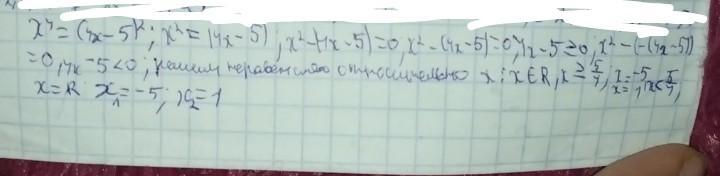 x⁴ = (4x - 5)²; x² = |4x - 5|; x² - |4x - 5| = 0, x² - (4x - 5) = 0, 4x - 5 ≥ 0; x² - (-(4x - 5))
= 0, 4x - 5 < 0; решим неравенство относительно x: x ∈ R, x ≥ 5/4, x = -5 x = 1, x < 5/4,
x = R x₁ = -5; x₂ = 1